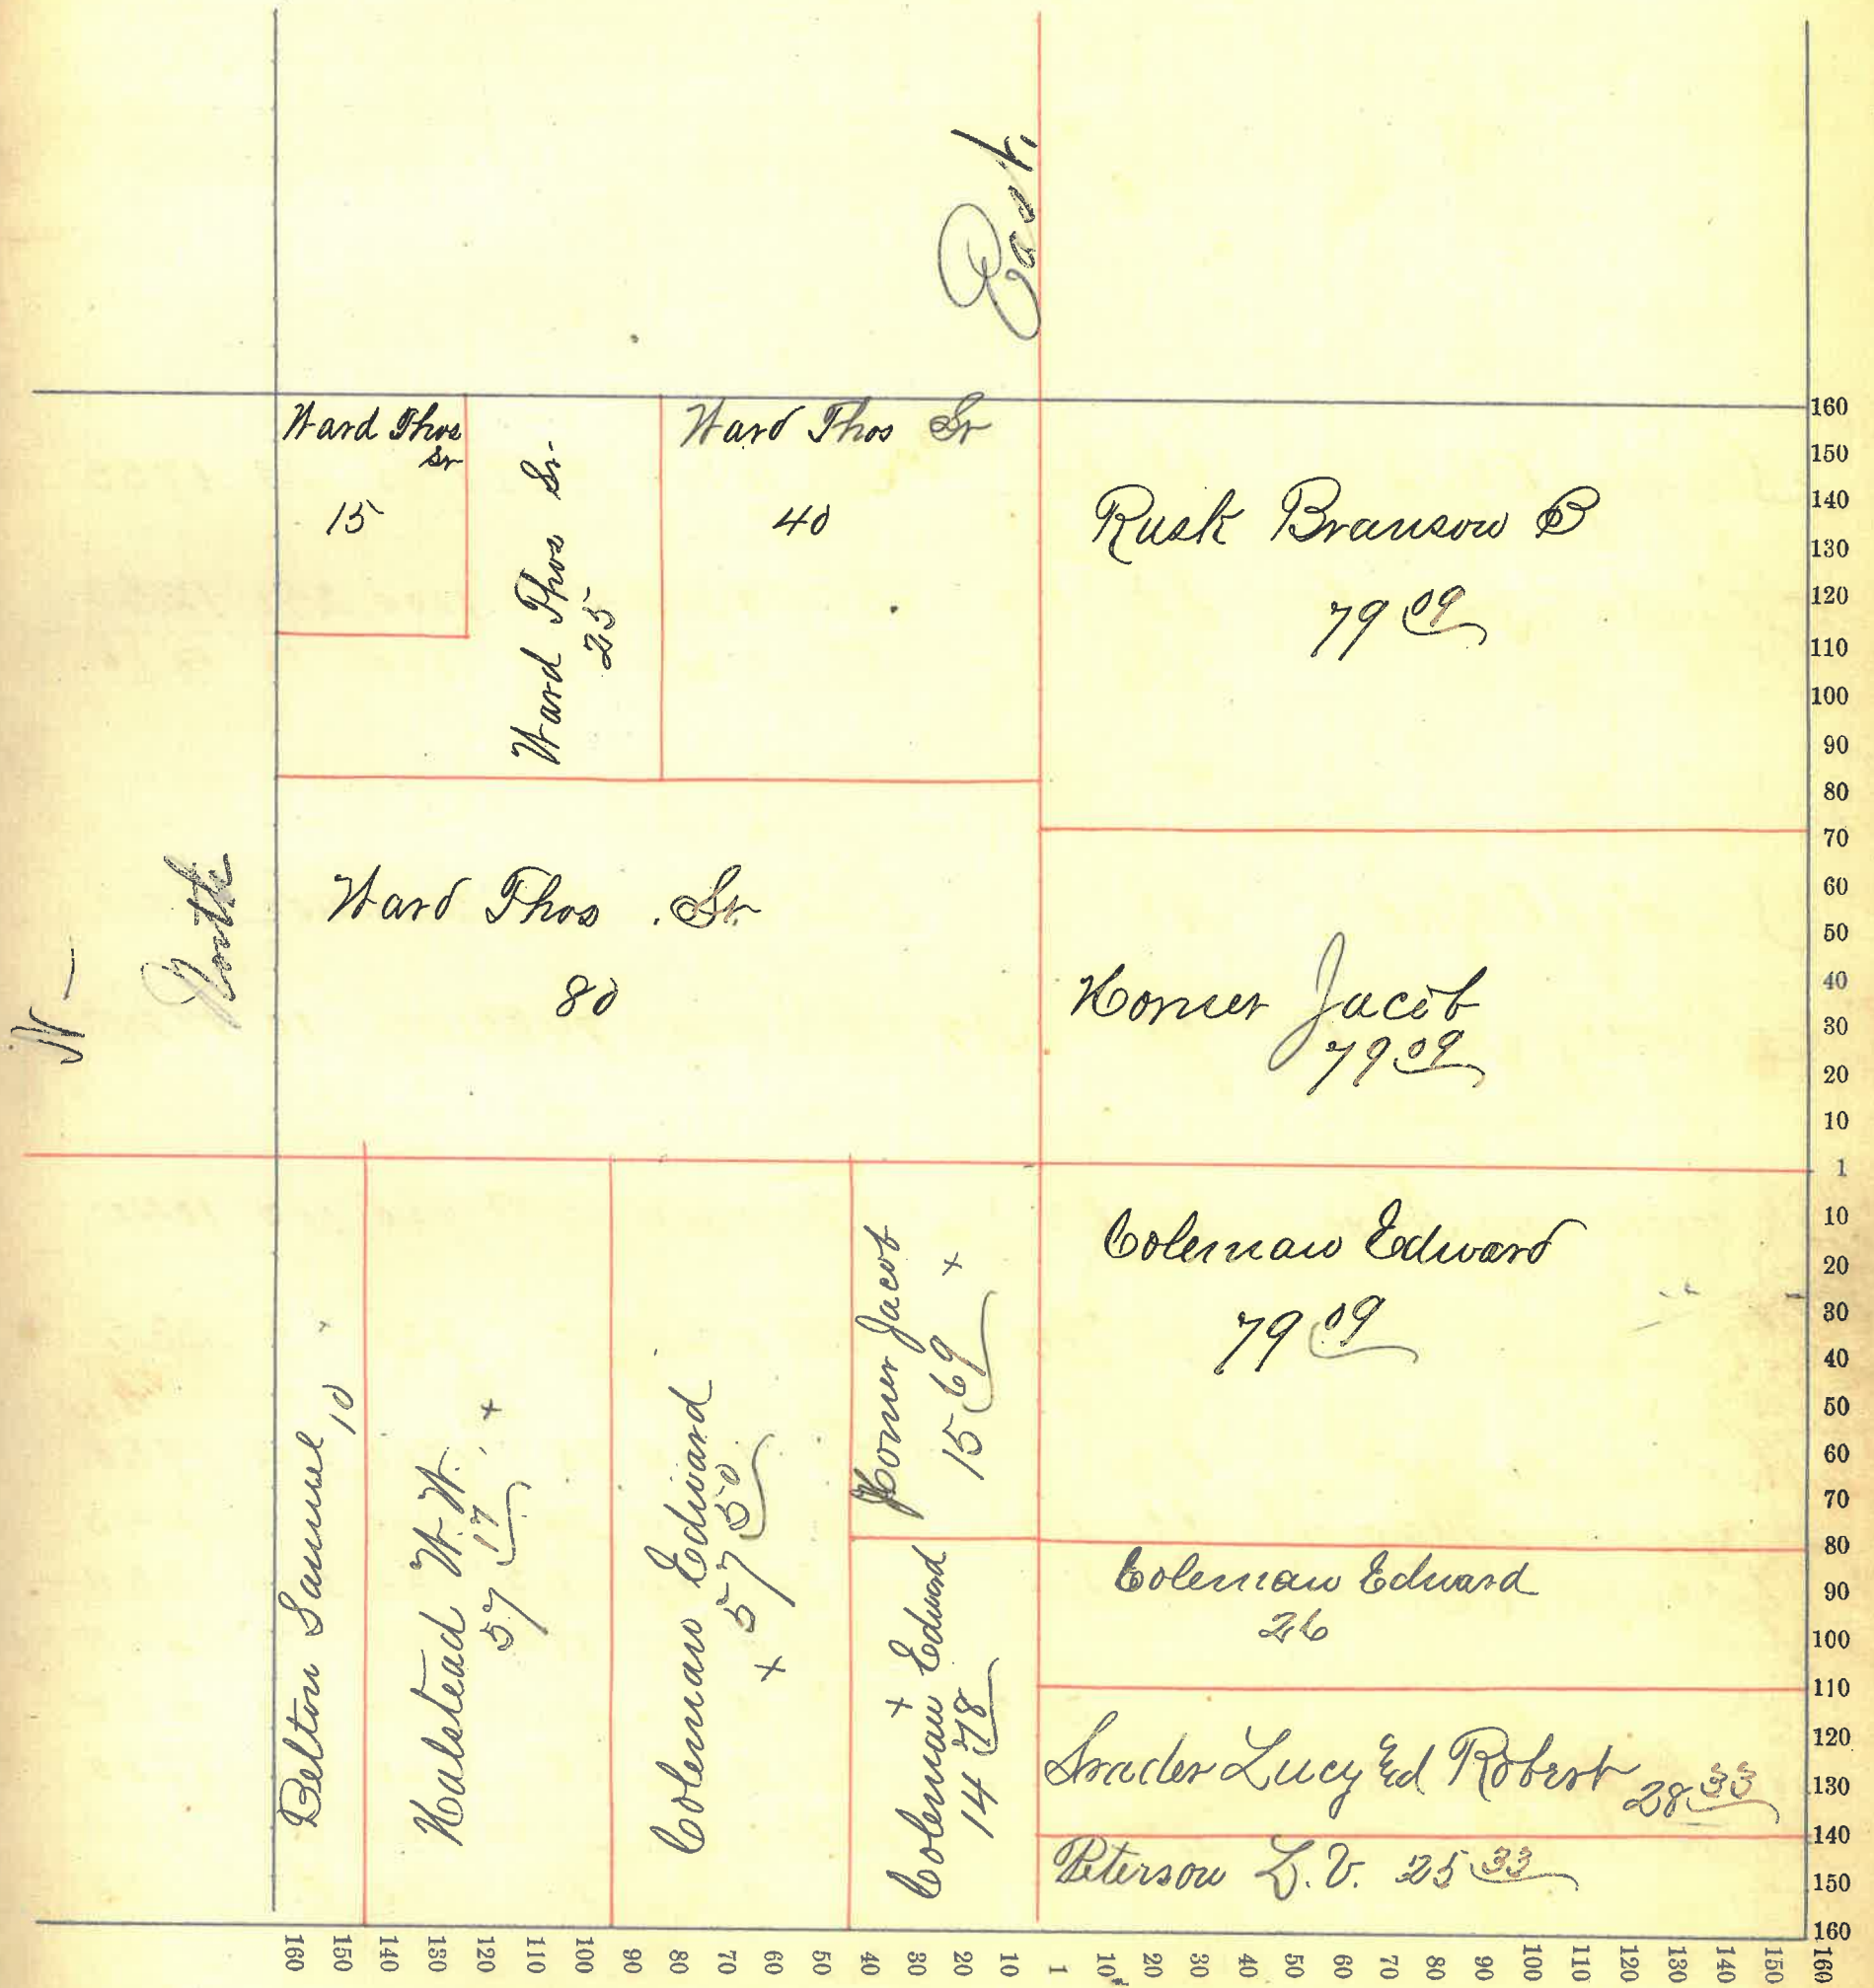 East.
Ward Thos
Sr
15
Ward Thos Sr.
25
Ward Thos Sr
40
Rusk Branson B
79 09
N —
North
Ward Thos. Sr.
80
Horner Jacob
79 09
Belton Samuel 10
Halstead W. W.
57 17
Coleman Edward
57 50
Horner Jacob
15 69
Coleman Edward
14 78
Coleman Edward
79 09
Coleman Edward
26
Srader Lucy Ed Robert 28 33
Peterson L. V. 25 33
160
150
140
130
120
110
100
90
80
70
60
50
40
30
20
10
1
10
20
30
40
50
60
70
80
90
100
110
120
130
140
150
160
160 150 140 130 120 110 100 90 80 70 60 50 40 30 20 10 1 10 20 30 40 50 60 70 80 90 100 110 120 130 140 150 160